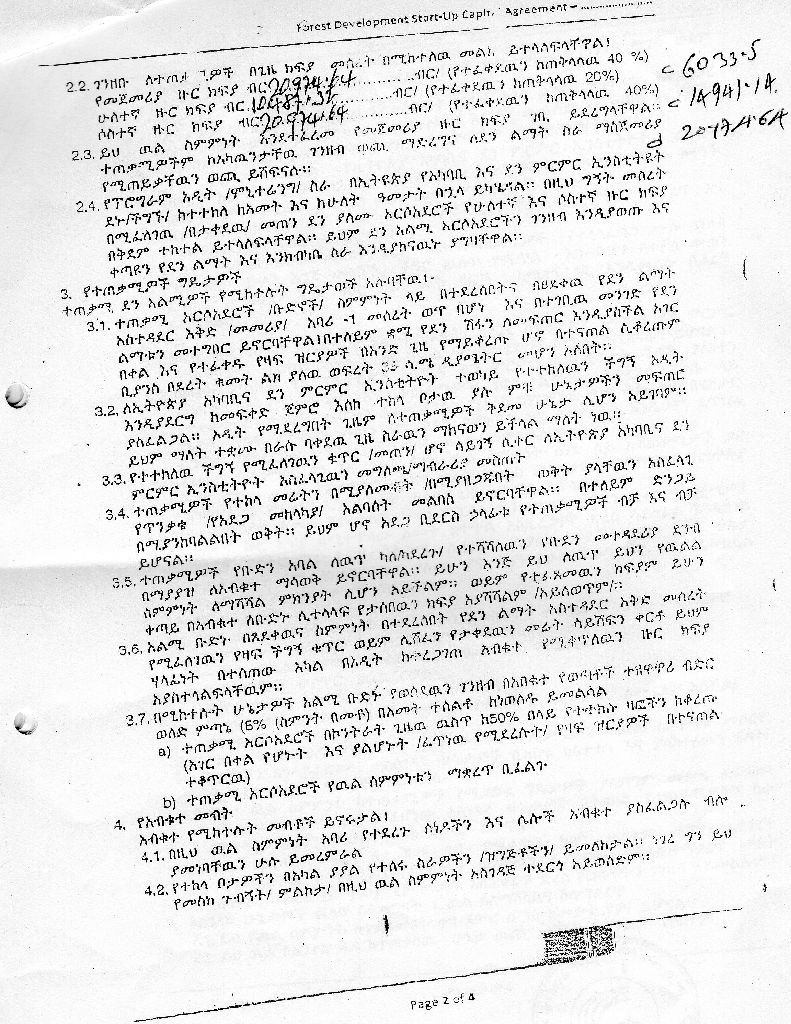 Forest Development Start-Up Capit. Agreement –
2.2. ገንዘቡ ለተጠቃሚዎች በጊዜ ክፍያ መሰረት በሚከተለዉ መልክ ይተላለፍላቸዋል፤
የመጀመሪያ ዙር ክፍያ ብር 20,974.64 ብር/ (የተፈቀደዉን ከጠቅላላዉ 40 %) 6033.5
ሁለተኛ ዙር ክፍያ ብር 10,487.32 ብር/ (የተፈቀደዉን ከጠቅላላዉ 20%) 14941.14
ሶስተኛ ዙር ክፍያ ብር 20,974.64 ብር/ (የተፈቀደዉን ከጠቅላላዉ 40%) 20974.64
2.3. ይህ ዉል ስምምነት እንደተፈረመ የመጀመሪያ ዙር ክፍያ ገቢ ይደረግላቸዋል።
ተጠቃሚዎችም ከአካዉንታቸዉ ገንዘብ ወጪ ማድረግና ለደን ልማት ስራ ማስጀመሪያ
የሚጠይቃቸዉን ወጪ ይሸፍናሉ።
2.4. የፕሮግራም አዲት /ሞኒተሪንግ/ ስራ በኢትዮጵያ የአካባቢ እና ደን ምርምር ኢንስቲትዩት
ደኑ/ችግኙ/ ከተተከለ ከአመት እና ከሁለት ዓመታት በኋላ ይካሄዳል። በዚህ ግኝት መሰረት
በሚፈለገዉ /በታቀደዉ/ መጠን ደን ያለሙ አርሶአደሮች የሁለተኛ እና ሶስተኛ ዙር ክፍያ
በቅደም ተከተል ይተላለፍላቸዋል። ይህም ደን አልሚ አርሶአደሮችን ገንዘብ እንዲያወጡ እና
ቀጣዩን የደን ልማት እና እንክብካቤ ስራ እንዲያከናዉኑ ያግዛቸዋል።
3. የተጠቃሚዎች ግዴታዎች
ተጠቃሚ ደን አልሚዎች የሚከተሉት ግዴታዎች አሉባቸዉ፤-
3.1. ተጠቃሚ አርሶአደሮች /ቡድኖች/ ስምምነት ላይ በተደረሰበትና በፀደቀዉ የደን ልማት
አስተዳደር እቅድ /መመሪያ/ አባሪ -1 መሰረት ወጥ በሆነ እና በተገቢዉ መንገድ የደን
ልማቱን መተግበር ይኖርባቸዋል፤በተለይም ቋሚ የደን ሽፋን ለመፍጠር እንዲያስችል አገር
በቀል እና የተፈቀዱ የዛፍ ዝርያዎች በአንድ ጊዜ የማይቆረጡ ሆኖ በተናጠል ሲቆረጡም
ቢያንስ በደረት ቁመት ልክ ያለዉ ወፍረት 35 ሴ.ሜ ዲያሜትር መሆን አለበት።
3.2. ለኢትዮጵያ አካባቢና ደን ምርምር ኢንስቲትዮት ተወካይ የተተከለዉን ችግኝ አዲት
እንዲያደርግ ከመፍቀድ ጀምሮ እስከ ተከላ ቦታዉ ያሉ ምቹ ሁኔታዎችን መፍጠር
ያስፈልጋል። አዲት የሚደረግበት ጊዜም ለተጠቃሚዎች ቅድመ ሁኔታ ሊሆን አይገባም።
ይህም ማለት ተቋሙ በራሱ ባቀደዉ ጊዜ ስራዉን ማከናወን ይችላል ማለት ነዉ።
3.3. የተተከለዉ ችግኝ የሚፈለገዉን ቁጥር /መጠን/ ሆኖ ሳይገኝ ሲቀር ለኢትዮጵያ አካባቢና ደን
ምርምር ኢንስቲትዮት አስፈላጊዉን መግለጫ/ማብራሪያ መስጠት
3.4. ተጠቃሚዎች የተከላ መሬትን በሚያለሙበት /በሚያዘጋጁበት ወቅት ያላቸዉን አስፈላጊ
የጥንቃቄ /የአደጋ መከላከያ/ አልባሳት መልበስ ይኖርባቸዋል። በተለይም ድንጋይ
በሚያንከባልልበት ወቅት። ይህም ሆኖ አደጋ ቢደርስ ኃላፊቱ የተጠቃሚዎች ብቻ እና ብቻ
ይሆናል።
3.5. ተጠቃሚዎች የቡድን አባል ለዉጥ ካለ የተሻሻለዉን የቡድን መተዳደሪያ ደንብ
በማያያዝ ለአብቁተ ማሳወቅ ይኖርባቸዋል። ይሁን እንጅ ይህ ለዉጥ ይህን የዉል
ስምምነት ለማሻሻል ምክንያት ሊሆን አይችልም። ወይም የተፈጸመዉን ክፍያም ይሁን
ቀጣይ በአብቁተ ለቡድኑ ሊተላለፍ የታሰበዉን ክፍያ አያሻሽልም /አይለወጥም/።
3.6. አልሚ ቡድኑ በጸደቀዉና ስምምነት በተደረሰበት የደን ልማት አስተዳደር እቅድ መሰረት
የሚፈለገዉን የዛፍ ችግኝ ቁጥር ወይም ሊሸፈን የታቀደዉን መሬት ሳይሸፍን ቀርቶ ይህም
ሃላፊነት በተሰጠው አካል በአዲት ከተረጋገጠ አብቁተ የሚቀጥለዉን ዙር ክፍያ
አያስተላልፍላቸዉም።
3.7. በሚከተሉት ሁኔታዎች አልሚ ቡድኑ የወሰደዉን ገንዘብ በአበቁተ የወጣቶች ተዘዋዋሪ ብድር
ወለድ ምጣኔ (8% (ስምንት በመቶ) በአመት ተሰልቶ ከነወለዱ ይመልሳል
a) ተጠቃሚ አርሶአደሮች በኮንትራት ጊዜዉ ዉስጥ ከ50% በላይ የተተከሉ ዛፎችን ከቆረጡ
(አገር በቀል የሆኑት እና ያልሆኑት /ፈጥነዉ የሚደረሱት/ የዛፍ ዝርያዎች በተናጠል
ተቆጥርዉ)
b) ተጠቃሚ አርሶአደሮች የዉል ስምምነቱን ማቋረጥ ቢፈልጉ
4. የአብቁተ መብት
አብቁተ የሚከተሉት መብቶች ይኖሩታል፤
4.1. በዚህ ዉል ስምምነት አባሪ የተደረጉ ሰነዶችን እና ሌሎች አብቁተ ያስፈልጋሉ ብሎ
ያመነባቸዉን ሁሉ ይመረምራል
4.2. የተከላ ቦታዎችን በአካል ያያል የተሰሩ ስራዎችን /ዝግጅቶችን/ ይመለከታል። ነገር ግን ይህ
የመስክ ጉብኝት/ ምልከታ/ በዚህ ዉል ስምምነት አስገዳጅ ተደርጎ አይወሰድም።
Page 2 of 4